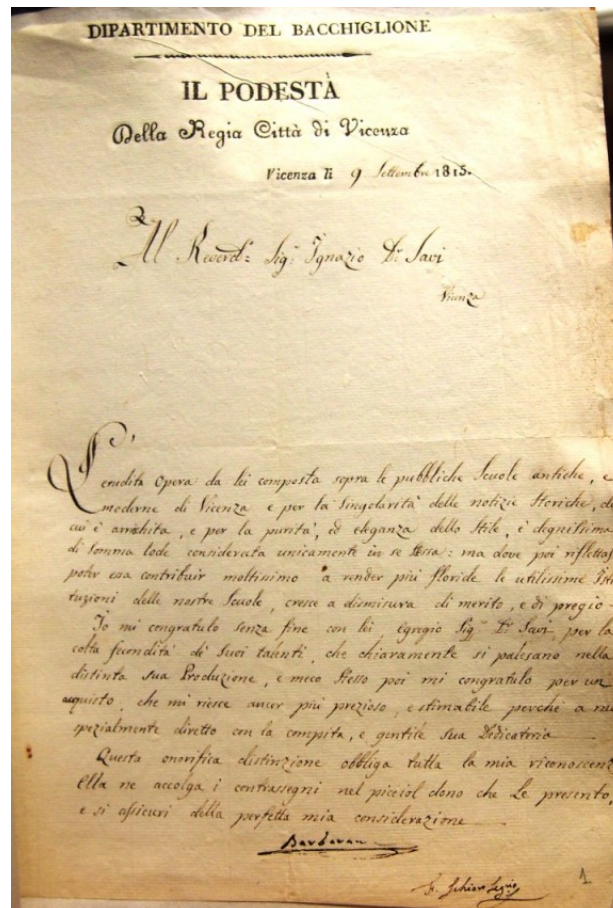 DIPARTIMENTO DEL BACCHIGLIONE
IL PODESTÀ
Della Regia Città di Vicenza
Vicenza li 9 Settembre 1815.
Al Reverd.º Sig.r Ignazio D.r Savi
Vicenza
L'
erudita Opera da lei composta sopra le pubbliche Scuole antiche, e
moderne di Vicenza e per la singolarità delle notizie storiche, di
cui è arrichita, e per la purità, ed eleganza dello Stile, è degnissima
di somma lode considerata unicamente in se stessa: ma dove poi
poter essa contribuir moltissimo a render più floride le utilissime Isti
tuzioni delle nostre Scuole, cresce a dismisura di merito, e di pregio
Io mi congratulo senza fine con lei, egregio Sig.r D.r Savi, per la
colta fecondità di suoi talenti, che chiaramente si palesano nella
distinta sua Produzione, e meco stesso poi mi congratulo per un
acquisto, che mi riesce ancor più prezioso, e stimabile perchè a me
spezialmente diretto con la compita, e gentile sua Dedicatoria
Questa onorifica distinzione obbliga tutta la mia riconoscenz
Ella ne accolga i contrassegni nel picciol dono che Le presento,
e si assicuri della perfetta mia considerazione
Barbaran
1